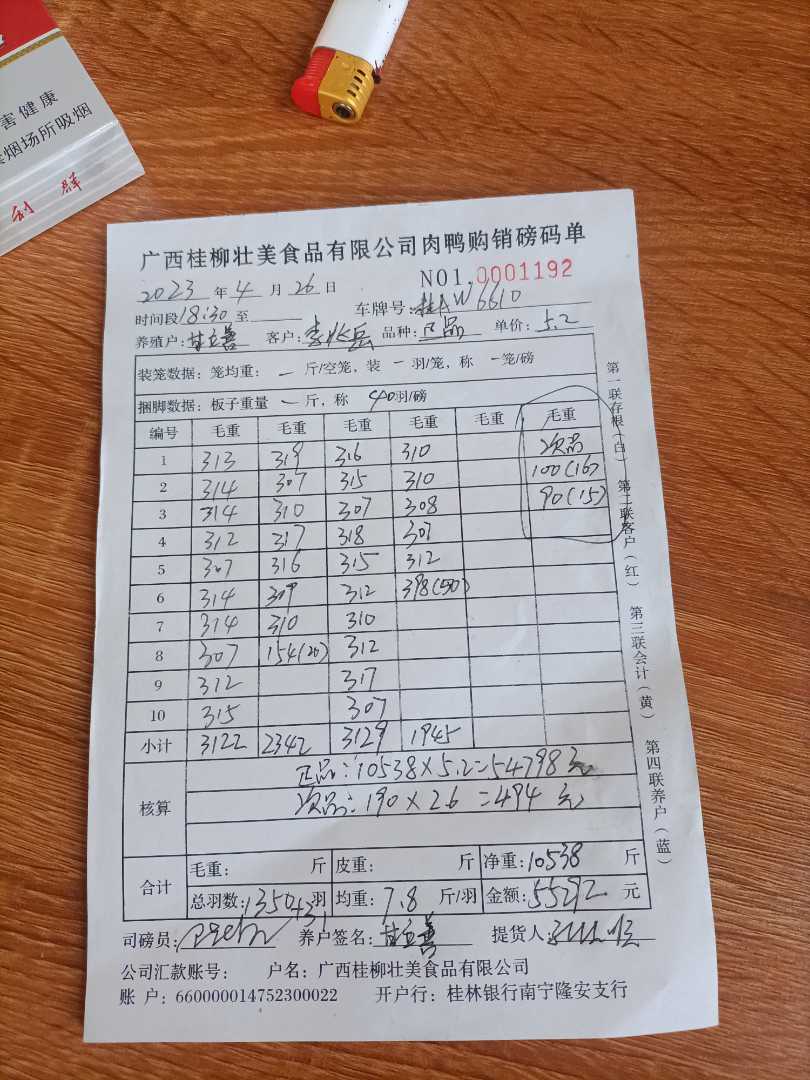 害健康
禁烟场所吸烟
利群
广西桂柳壮美食品有限公司肉鸭购销磅码单
NO1.0001192
2023年4月26日
车牌号:桂AW6610
时间段18:30至
养殖户:甘立善 客户: 品种:正品 单价:5.2
装笼数据:笼均重:一斤/空笼,装一羽/笼,称一笼/磅
捆脚数据:板子重量一斤,称40羽/磅
编号 毛重 毛重 毛重 毛重 毛重 毛重
1 313 319 316 310 次品
2 314 307 315 310 100(16)
3 314 310 307 308 90(15)
4 312 317 318 307
5 307 316 315 312
6 314 309 312 398(50)
7 314 310 310
8 307 154(20) 312
9 312 317
10 315 307
小计 3122 2342 3129 1945
核算
正品:10538×5.2=54798元
次品:190×2.6=494元
合计
毛重: 斤 皮重: 斤 净重:10538斤
总羽数:1350+31羽 均重:7.8斤/羽 金额:55292元
司磅员: 养户签名:甘立善 提货人:
公司汇款账号: 户名:广西桂柳壮美食品有限公司
账户:660000014752300022 开户行:桂林银行南宁隆安支行
第一联存根(白) 第二联客户(红) 第三联会计(黄) 第四联养户(蓝)